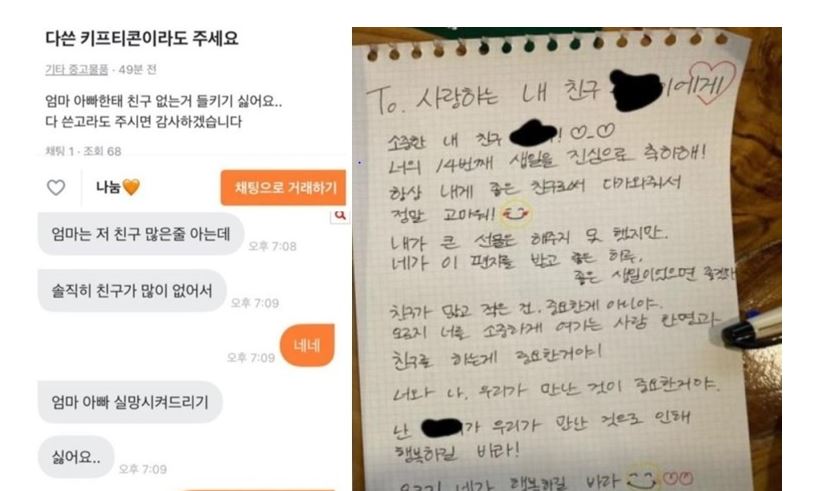 다쓴 키프티콘이라도 주세요
기타 중고물품 · 49분 전
엄마 아빠한태 친구 없는거 들키기 싫어요..
다 쓴고라도 주시면 감사하겠습니다
채팅 1 · 조회 68
나눔🧡
채팅으로 거래하기
엄마는 저 친구 많은줄 아는데
오후 7:08
솔직히 친구가 많이 없어서
오후 7:09
네네
오후 7:09
엄마 아빠 실망시켜드리기
싫어요..
오후 7:09
To. 사랑하는 내 친구 이에게
소중한 내 친구 ! ♡_♡
너의 14번째 생일을 진심으로 축하해!
항상 내게 좋은 친구로써 다가와줘서
정말 고마워!
내가 큰 선물은 해주지 못 했지만.
네가 이 편지를 받고 좋은 하루,
좋은 생일이었으면 좋겠다
친구가 많고 적은 건. 중요한게 아니야.
오로지 너를 소중하게 여기는 사람 한명과
친구를 하는게 중요한거야!
너와 나, 우리가 만난 것이 중요한거야.
난 가 우리가 만난 것으로 인해
행복하길 바라!
오로지 네가 행복하길 바라 ♡♡